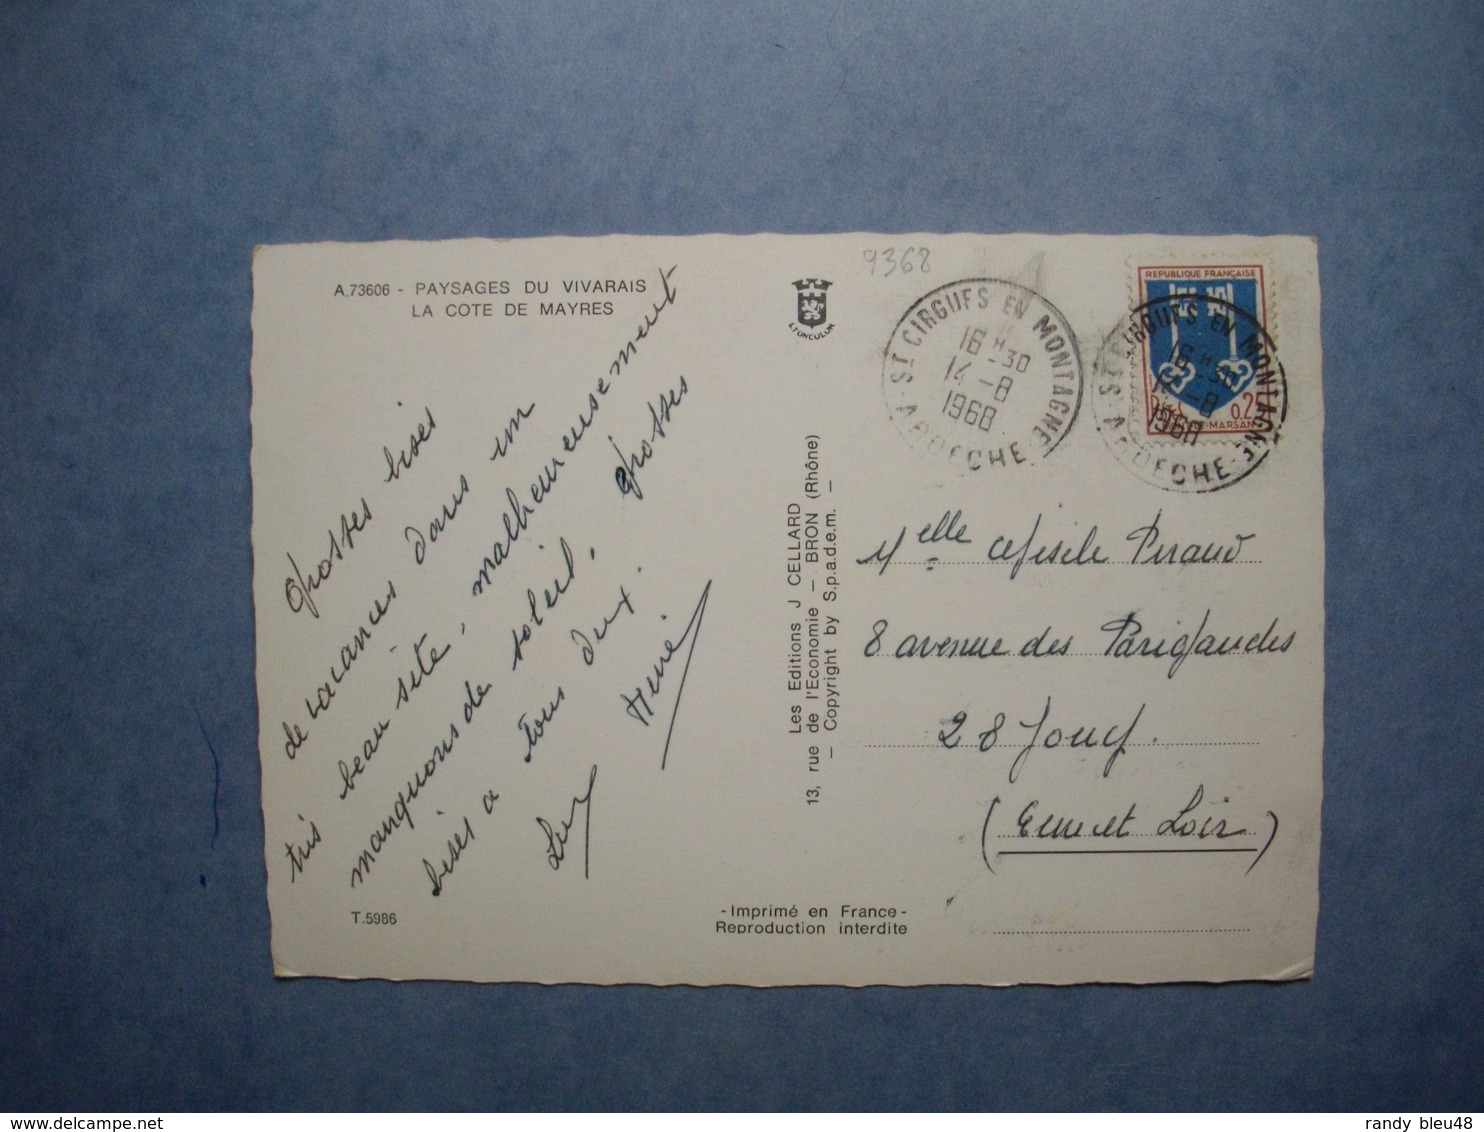 A.73606 - PAYSAGES DU VIVARAIS
LA COTE DE MAYRES
Grosses bises
de vacances dans un
très beau site, malheureusement
manquons de soleil. Grosses
bises a tous deux.
René
T.5986
LYONCOLOR
Les Editions J CELLARD
13, rue de l'Economie — BRON (Rhône)
— Copyright by S.p.a.d.e.m. —
-Imprimé en France-
Reproduction interdite
9368
ST CIRGUES EN MONTAGNE
16 H -30
14 -8
1968
ARDECHE
REPUBLIQUE FRANÇAISE
0.2
-MARSAN
ST CIRGUES EN MONTAGNE
16 H -30
14 -8
1968
ARDECHE
Melle Gisèle Peraud
8 avenue des
28 Jouy.
(Eure et Loir)
delcampe.net
randy bleu48